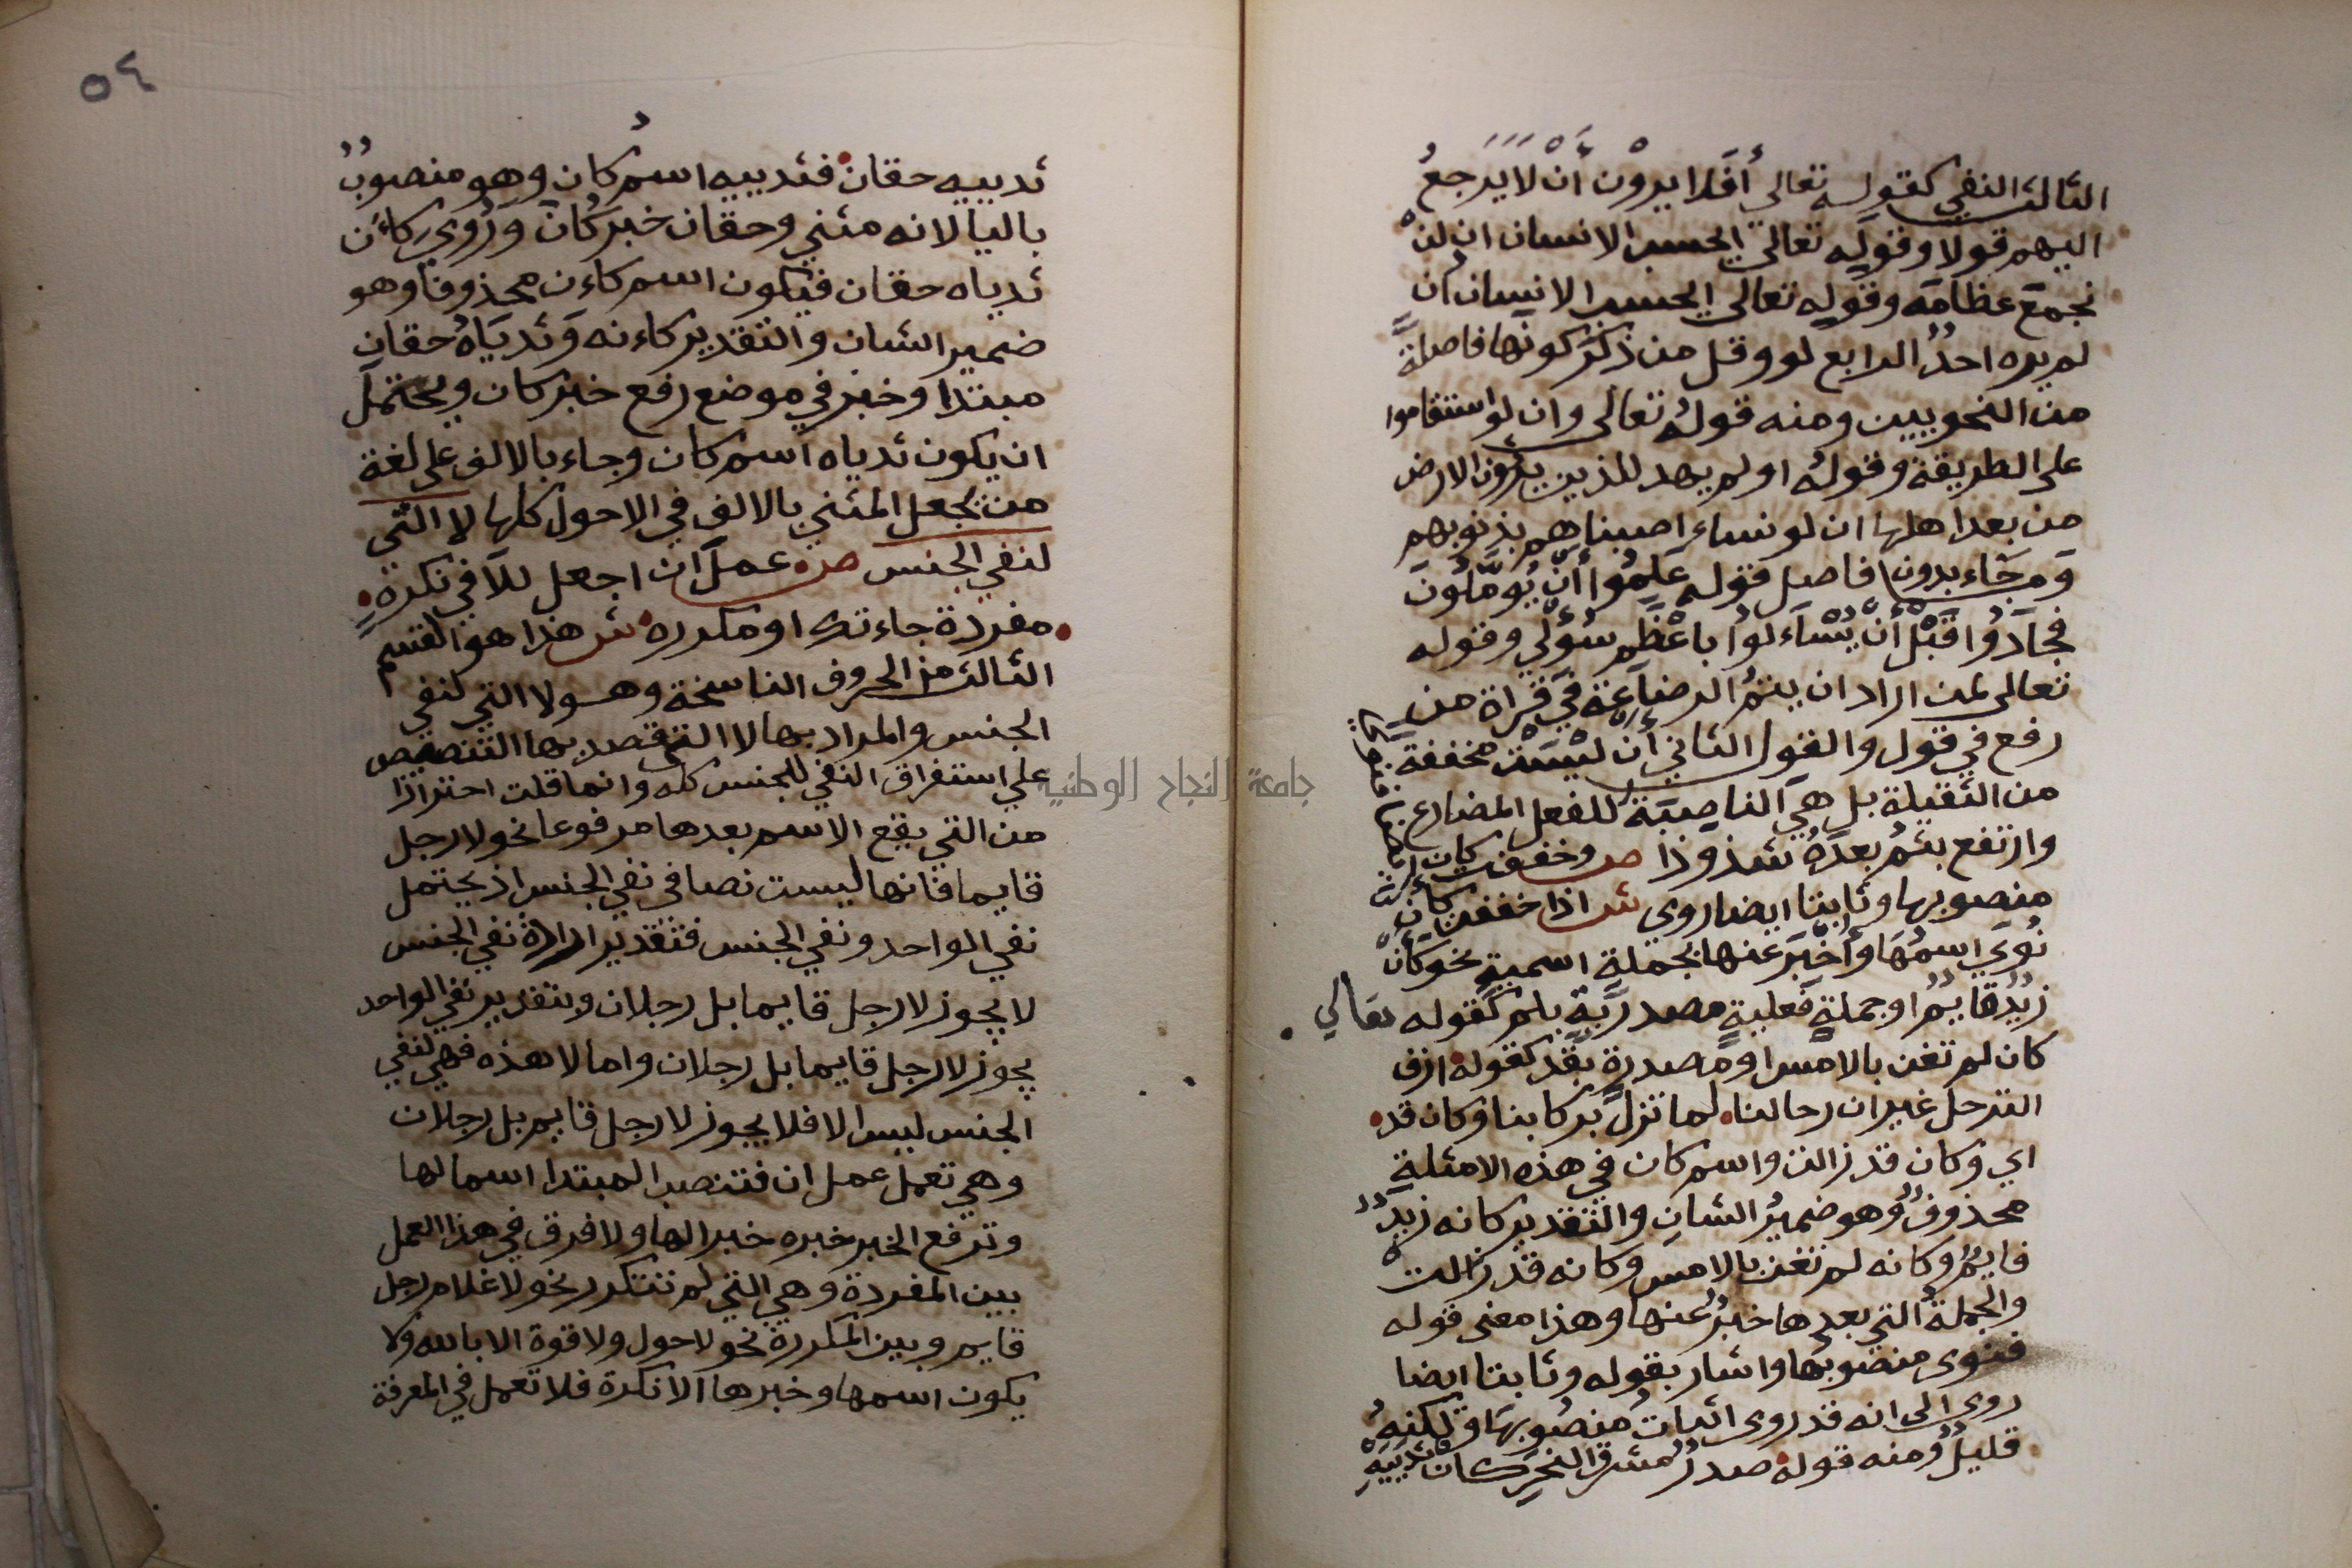 الثالث النفي كقوله تعالي أفَلا يروْن أنْ لَا يَرجعُ
اليهم قولا وقوله تعالي ايحسب الانسان ان لنْ
نجمعَ عظامَه وقوله تعالي ايحسب الانسان أن
لم يره احدٌ الرابع لو وقل من ذكَر كونها فاصلةً
من النحويين ومنه قولُه تعالى وان لو استقاموا
على الطريقة وقولُه اولم يهد للذين يرثون الارض
من بعد اهلها ان لو نساء اصبناهم بذنوبهم
وَمما جَاء بدون فاصل قوله عَلِمُوا أنْ يُومَّلُونَ
فجَادُوا قَبْلَ أنْ يُسْاَءلوُا باعْظَمِ سُؤْلِي وقوله
تعالى لمن اراد ان يتمُ الرضاعَة في قراة من
رفع في قول والقول الثاني أنْ ليْسَتْ مخففة
من الثقيلة بل هي الناصِبَة للفعل المضارع
وارتفع يتمُ بعدَهُ شذوذا ص وخففت كان ايضا فنوي
منصوبها وثابتا ايضا روي ش اذا خففت كأن
نُوِيَ اسمُهَا وأُخْبَرَ عنها بجملةٍ اسميةٍ نحو كأنْ
زيدٌ قايمٌ او جملةٍ فعليةٍ مصدرَةٍ بلم كقوله تعالي
كان لم تغن بالامس او مصدرةٍ بقَد كقوله ازف
الترحل غير ان رحالنا لما تزل بركابنا وكان قد
اي وكان قد زالت واسم كان في هذه الامثلةِ
محذوفٌ وهو ضميرُ الشانِ والتقدير كانه زيدٌ
قايمٌ وكانه لم تغن بالامس وكانه قد زالت
والجملةُ التي بعدها خبرٌ عنها وهذا معنى قوله
فنوى منصوبها واشار بقوله وثابتا ايضا
روى الى انه قد روى اثبات منصوبهَا ولكنهُ
قليلٌ ومنه قوله صدرٌ مشرق النحرِ كان ثدييَهِ
٥٤
ثدييه حقان فثدييه اسم كان وهو منصوبٌ
باليا لانه مثني وحقان خبر كان وَرُويَ كاَن
ثدياه حقان فيكون اسم كاءن محذوفا وهو
ضمير الشان والتقدير كاءنه وَثدياَهُ حقانِ
مبتدا وخبر في موضع رفع خبر كان ويحتملُ
ان يكون ثدياه اسم كان وجاء بالالف على لغة
من يجعل المثني بالالف في الاحول كلها لا التي
لنفي الجنس ص عملَ ان اجعل للاَ في نكرةٍ
مفردة جاءتك او مكرره ش هذا هو القسم
الثالث من الحروف الناسخة وهو لا التي لنفي
الجنس والمراد بها لا التي قصد بها التنصيص
علي استغراق النفي للجنس كله وانما قلت احترازا
من التي يقع الاسم بعدها مرفوعا نحو لا رجل
قايما فانها ليست نصا في نفي الجنس اذ يحتمل
نفي الواحد ونفي الجنس فتقدير ارادة نفي الجنس
لا يجوز لا رجل قايما بل رجلان وبتقدير نفي الواحد
يجوز لا رجل قايما بل رجلان واما لا هذه فهي لنفي
الجنس ليس الا فلا يجوز لا رجل قايم بل رجلان
وهي تعمل عمل ان فتنصب المبتدا اسما لها
وترفع الخبر خبره خبرا لها ولا فرق في هذا العمل
بين المفردة وهي التي لم تتكرر نحو لا غلام رجل
قايم وبين المكررة نحو لا حول ولا قوة الا بالله ولا
يكون اسمها وخبرها الا نكرة فلا تعمل في المعرفة
جامعة النجاح الوطنية